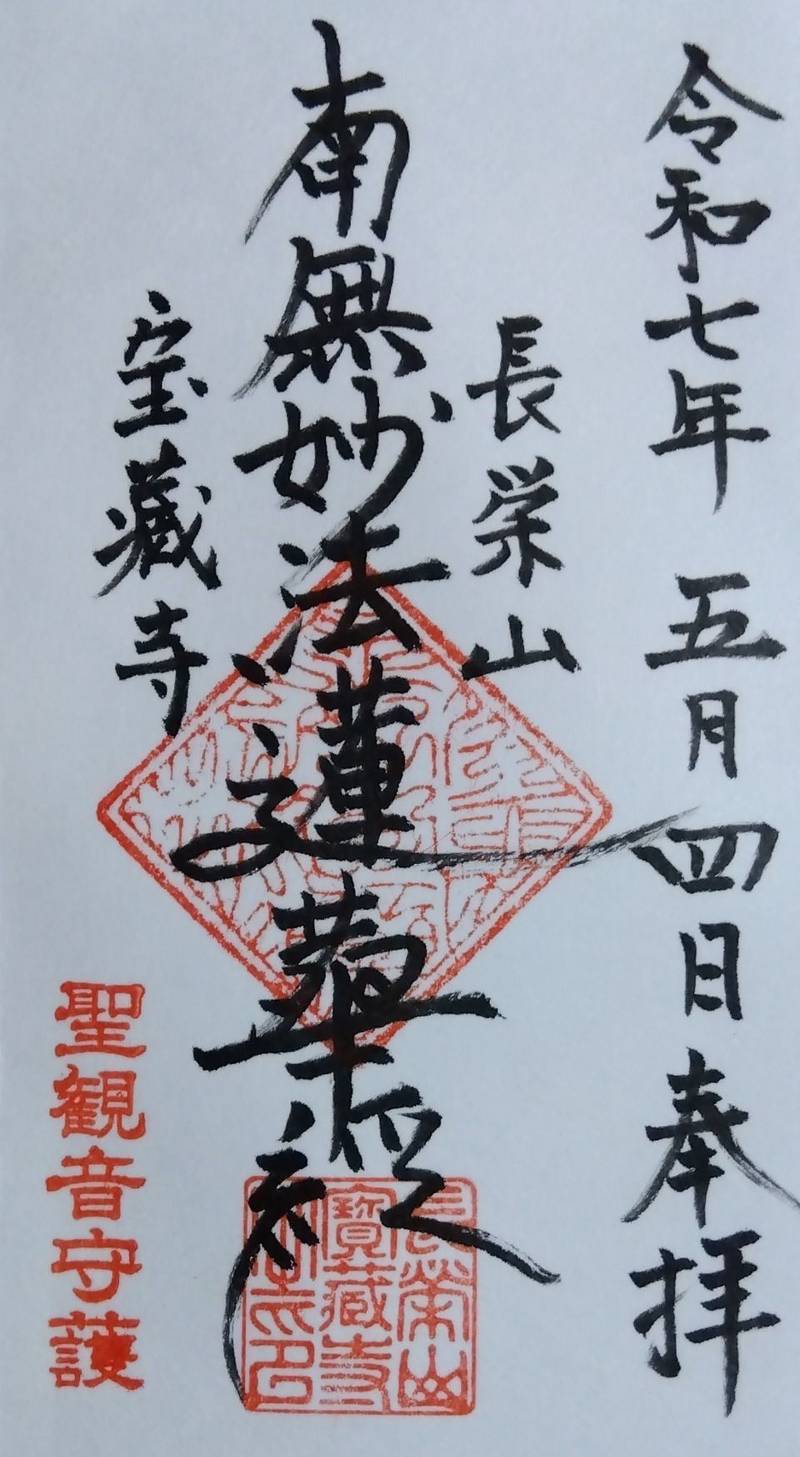 令和七年 五月四日 奉拝
長栄山
南無妙法蓮華経
宝蔵寺
聖観音守護
長榮山
寳藏寺